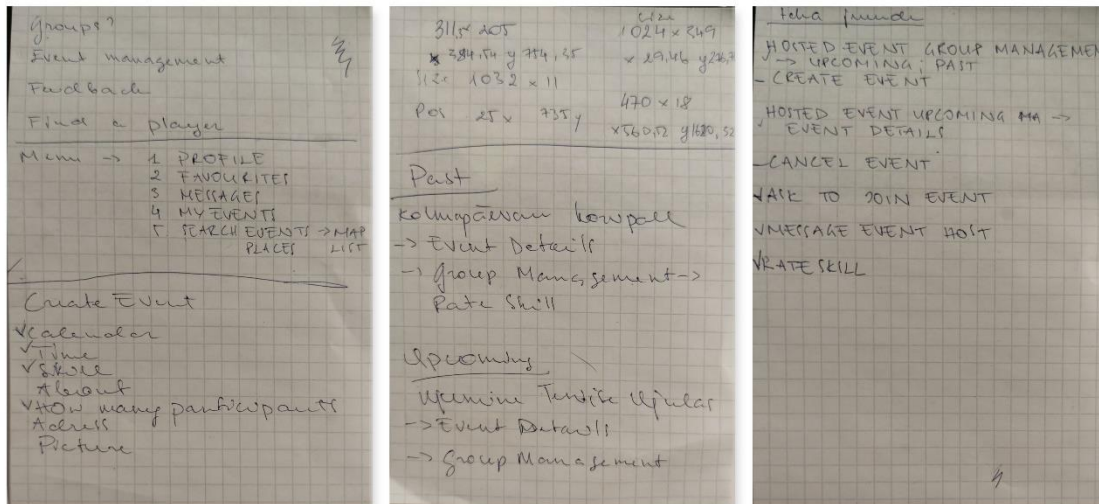 Groups?
Event management
Feedback
Find a player
Menu -> 1 PROFILE
2 FAVOURITES
3 MESSAGES
4 MY EVENTS
5 SEARCH EVENTS -> MAP
PLACES LIST
Create Event
√ Calendar
√ Time
√ Skill
About
√ HOW many participants
Adress
Picture
311,5 x 205
x 384,54 y 754,35
Size 1032 x 11
Pos 25 x 735 y
size
1024 x 349
x 29,46
470 x 18
x 560,52 y 1680,52
Past
Kolmapäevan korvpall
-> Event Details
-> Group Management ->
Rate Skill
Upcoming
Ujumine Tondise Ujulas
-> Event Details
-> Group Management
teha
HOSTED EVENT GROUP MANAGEMEN
-> UPCOMING; PAST
- CREATE EVENT
HOSTED EVENT UPCOMING MA ->
EVENT DETAILS
- CANCEL EVENT
√ ASK TO JOIN EVENT
√ MESSAGE EVENT HOST
√ RATE SKILL